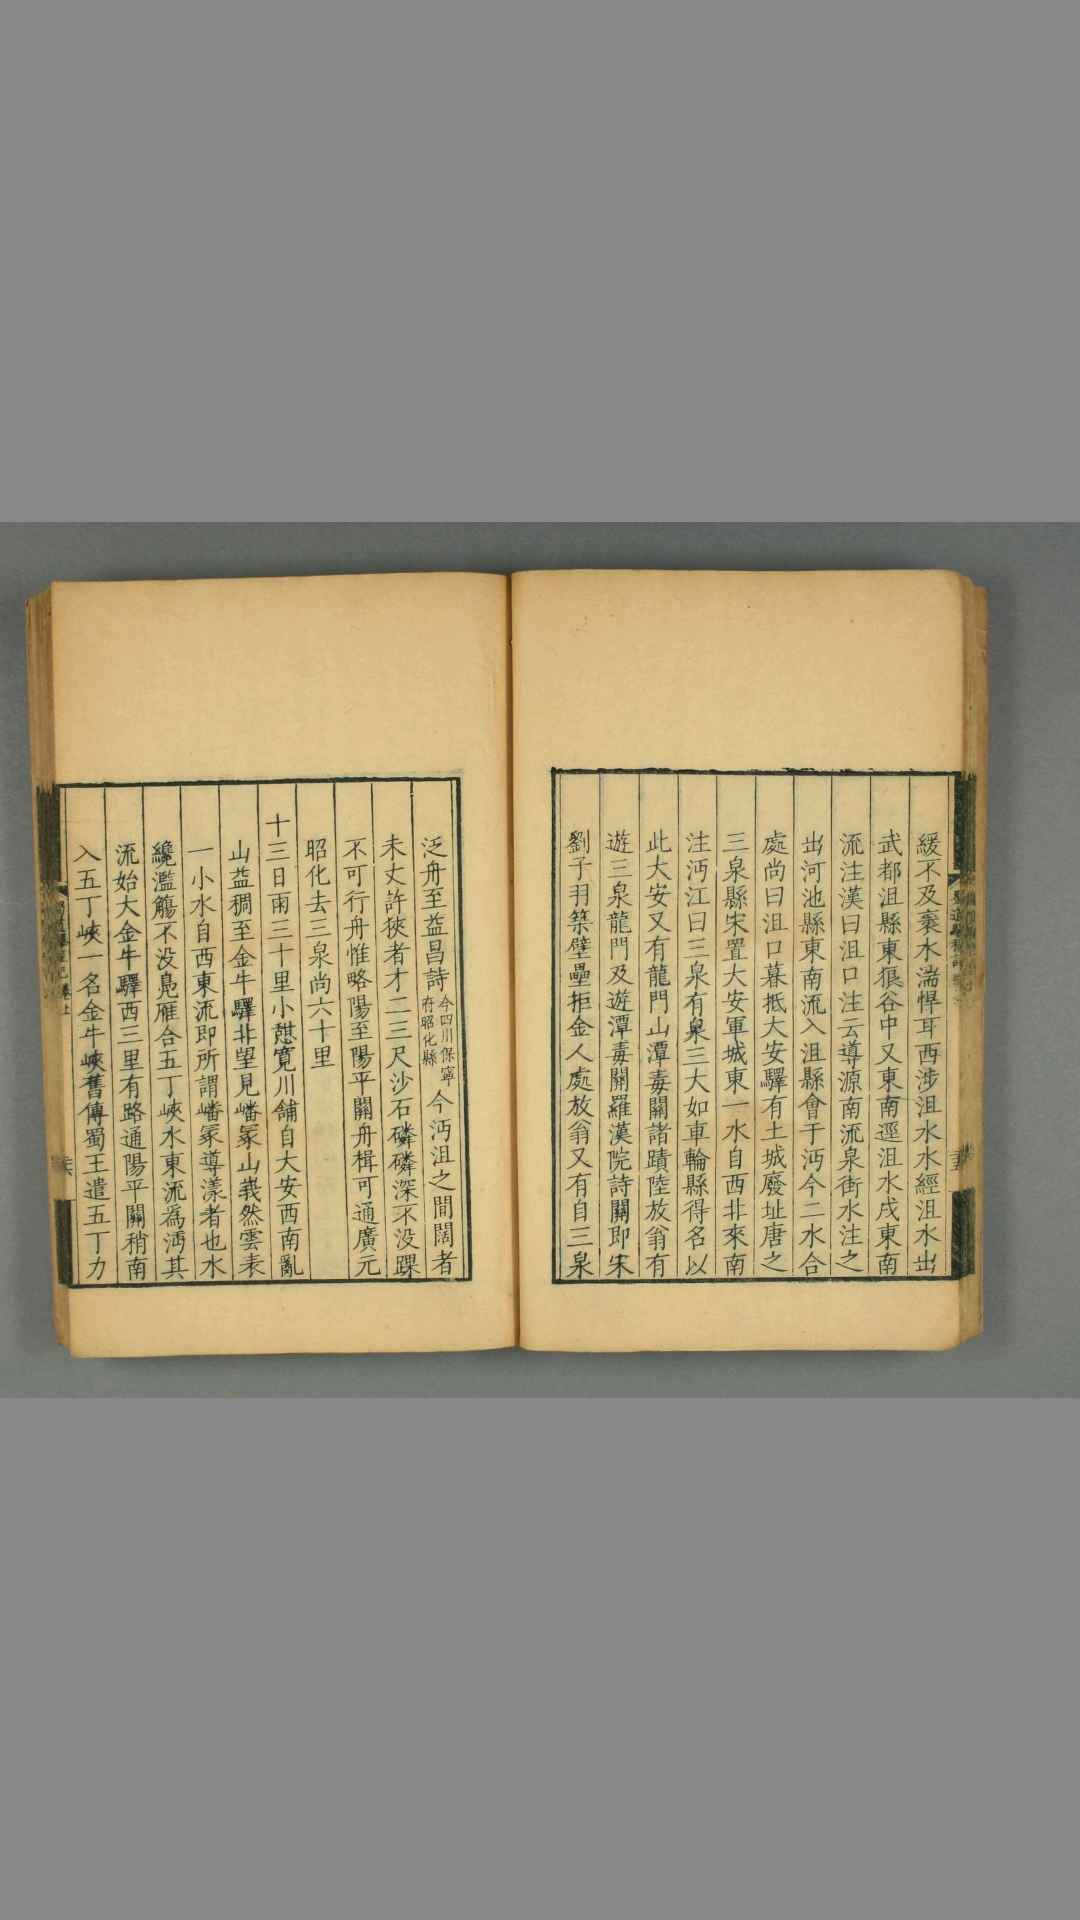 緩不及褒水湍悍耳西涉沮水水經沮水出
武都沮縣東狼谷中又東南逕沮水戍東南
流注漢曰沮口注云導源南流泉街水注之
出河池縣東南流入沮縣會于沔今二水合
處尚曰沮口暮抵大安驛有土城廢址唐之
三泉縣宋置大安軍城東一水自西北來南
注沔江曰三泉有泉三大如車輪縣得名以
此大安又有龍門山潭毒關諸蹟陸放翁有
遊三泉龍門及遊潭毒關羅漢院詩關即宋
劉子羽築壁壘拒金人處放翁又有自三泉
泛舟至益昌詩今四川保寧府昭化縣今沔沮之間闊者
未丈許狹者才二三尺沙石磷磷深不没踝
不可行舟惟略陽至陽平關舟楫可通廣元
昭化去三泉尚六十里
十三日雨三十里小憩寬川舖自大安西南亂
山益稠至金牛驛北望見嶓冢山峩然雲表
一小水自西東流即所謂嶓冢導漾者也水
纔濫觴不没鳧雁合五丁峽水東流爲沔其
流始大金牛驛西三里有路通陽平關稍南
入五丁峽一名金牛峽舊傳蜀王遣五丁力